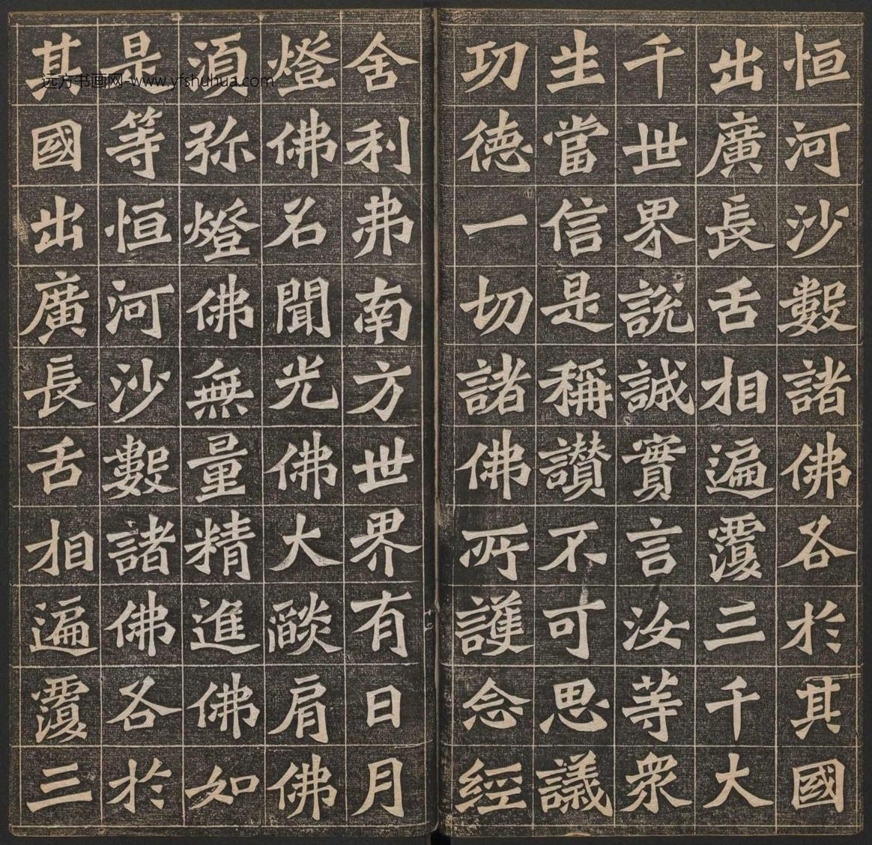 恒河沙數諸佛各於其國
出廣長舌相遍覆三千大
千世界說誠實言汝等衆
生當信是稱讃不可思議
功徳一切諸佛所護念經
舍利弗南方世界有日月
燈佛名聞光佛大燄肩佛
湏弥燈佛無量精進佛如
是等恒河沙數諸佛各於
其國出廣長舌相遍覆三
远方书画网-www.yfshuhua.com